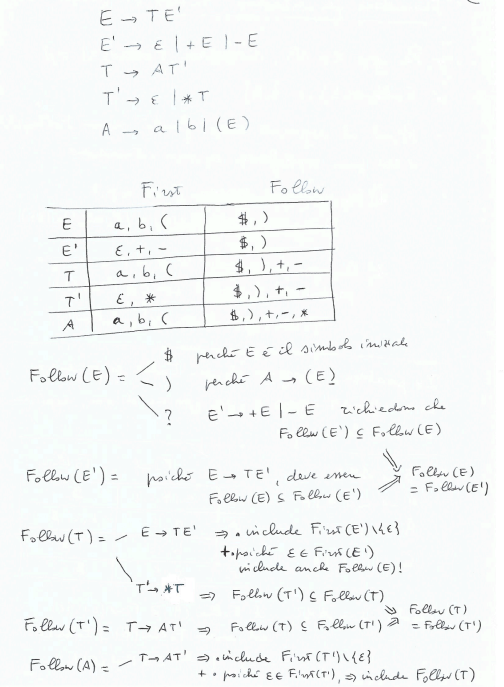 E → TE'
E' → ε | +E | -E
T → AT'
T' → ε | *T
A → a | b | (E)
First Follow
E a, b, ( $, )
E' ε, +, - $, )
T a, b, ( $, ), +, -
T' ε, * $, ), +, -
A a, b, ( $, ), +, -, *
$ perché E è il simbolo iniziale
Follow(E) = ) perché A → (E)
? E' → +E | -E richiedono che
Follow(E') ⊆ Follow(E)
Follow(E') = poiché E → TE', deve essere Follow(E)
Follow(E) ⊆ Follow(E') = Follow(E')
Follow(T) = E → TE' ⇒ • include First(E')\{ε}
+ • poiché ε ∈ First(E')
include anche Follow(E)!
T' → *T ⇒ Follow(T') ⊆ Follow(T)
Follow(T)
Follow(T') = T → AT' ⇒ Follow(T) ⊆ Follow(T') = Follow(T')
Follow(A) = T → AT' ⇒ • include First(T')\{ε}
+ • poiché ε ∈ First(T'), ⇒ include Follow(T)